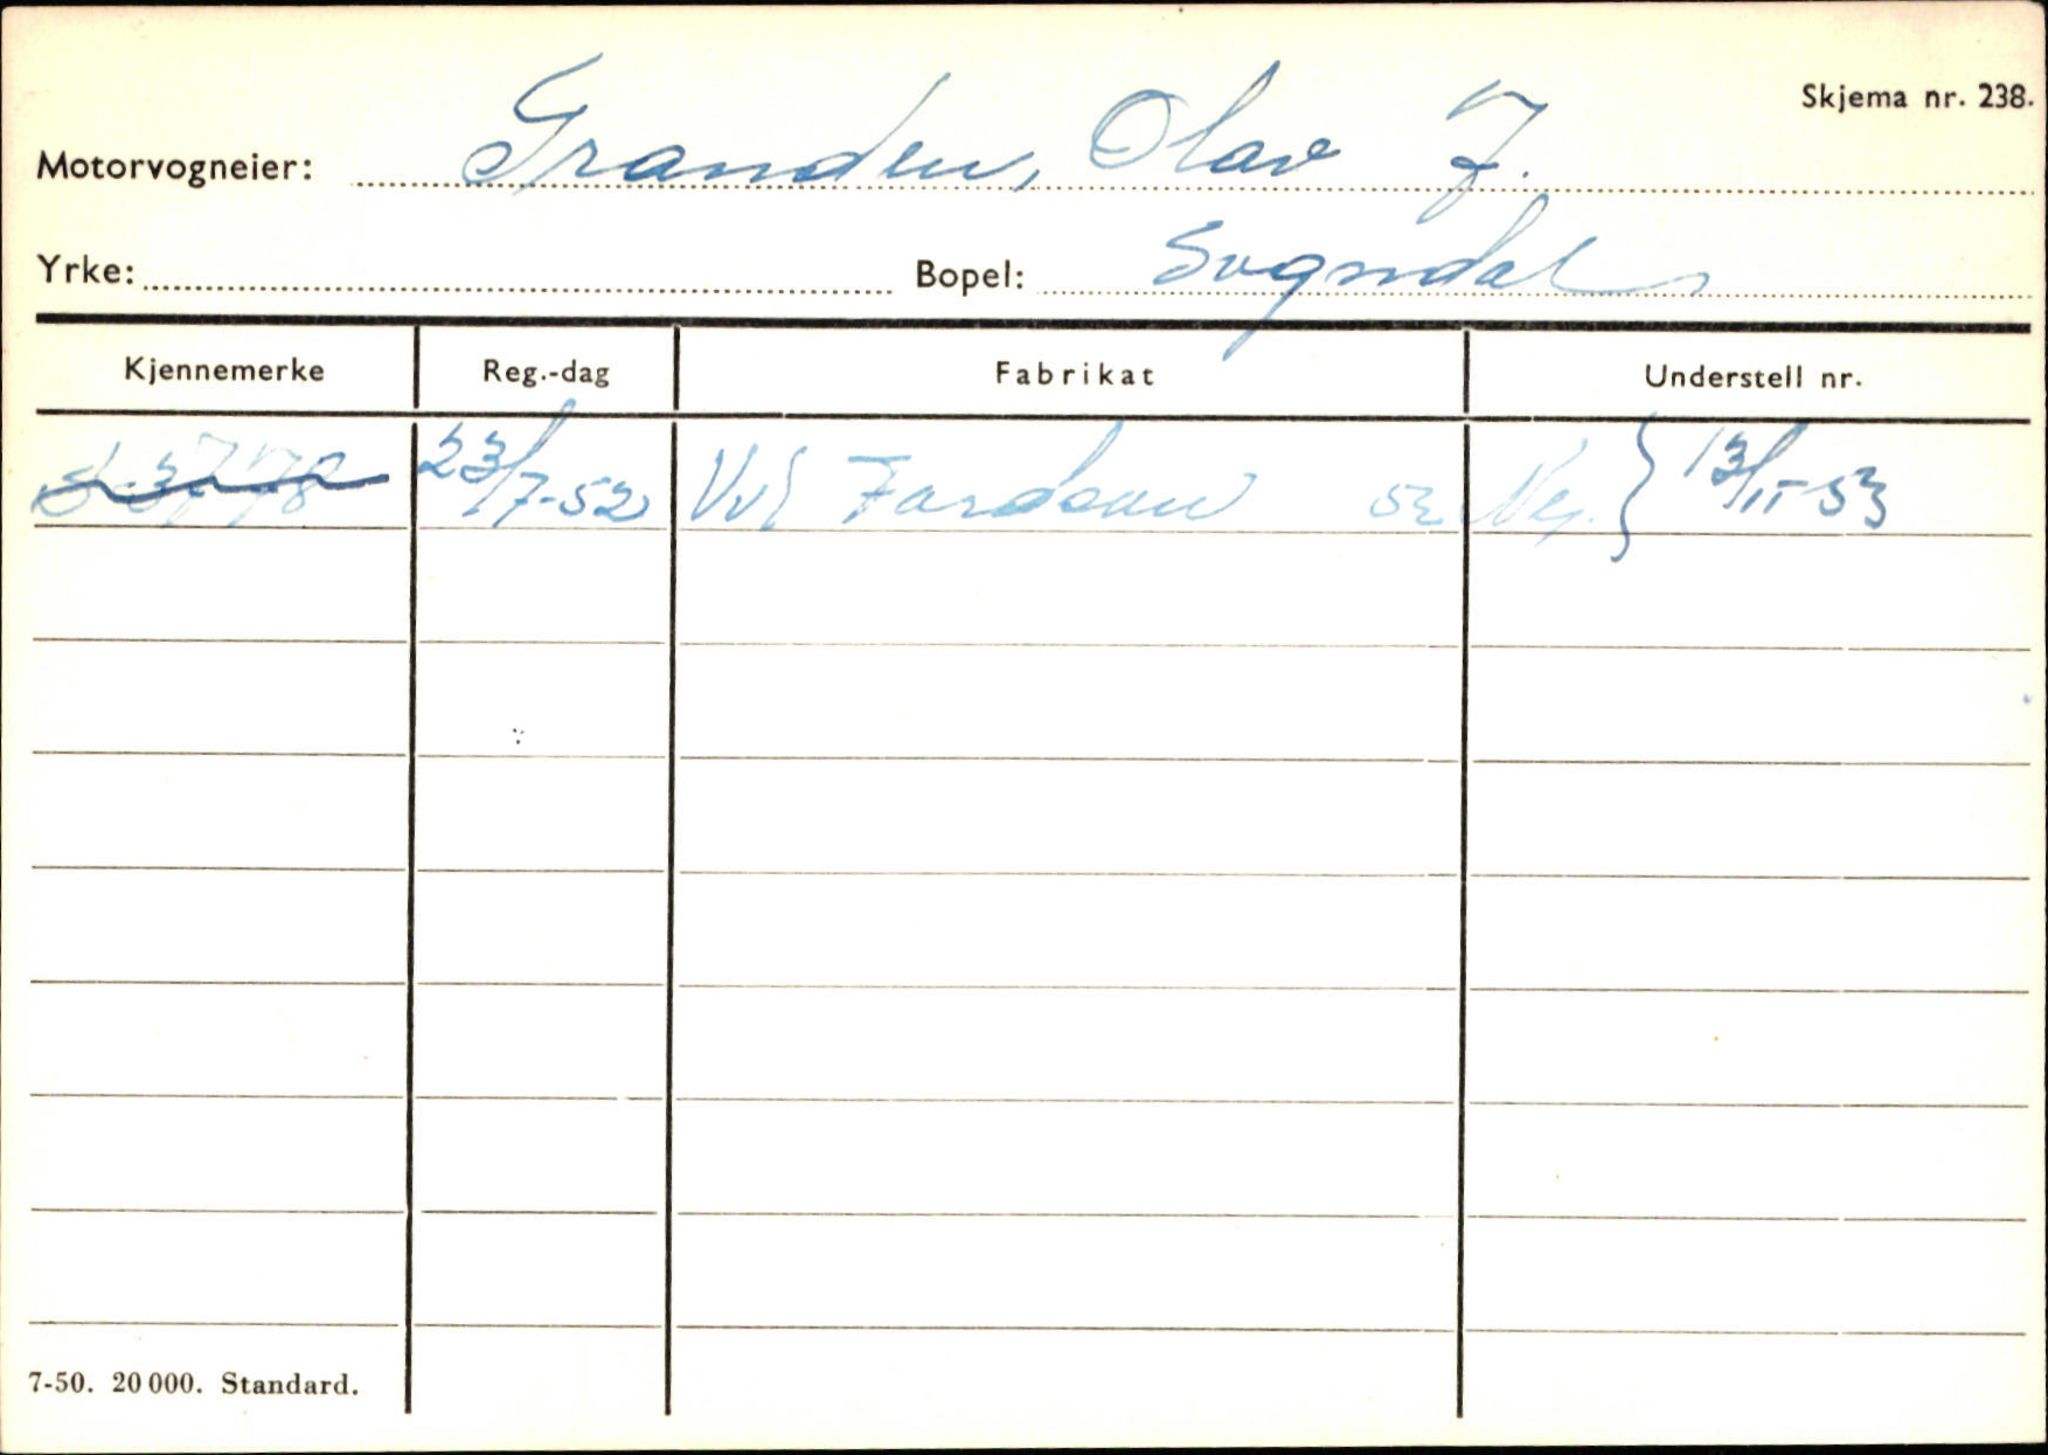 Skjema nr. 238.
Motorvogneier: Granden, Olav J.
Yrke: Bopel: Sogndal
Kjennemerke Reg.-dag Fabrikat Understell nr.
23/7-52 Fordson 52 13/11-53
7-50. 20 000. Standard.